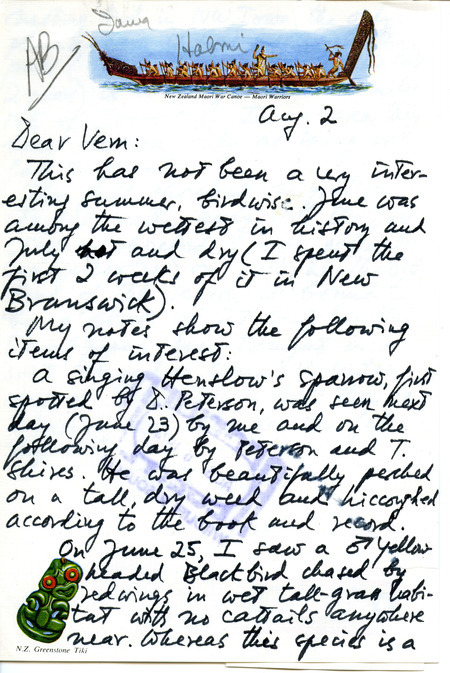 AB
Halmi
New Zealand Maori War Canoe — Maori Warriors
Aug. 2
Dear Vern:
This has not been a very inter-
esting summer, birdwise. June was
among the wettest in history and
July hot and dry (I spent the
first 2 weeks of it in New
Brunswick).
My notes show the following
items of interest:
A singing Henslow's Sparrow, first
spotted by D. Peterson, was seen next
day (June 23) by me and on the
following day by Peterson and T.
Shires. He was beautifully perched
on a tall, dry weed and hiccoughed
according to the book and record.
On June 25, I saw a ♂ Yellow
headed Blackbird chased by
redwings in wet tall-grass habi-
tat with no cattails anywhere
near. Whereas this species is a
N.Z. Greenstone Tiki